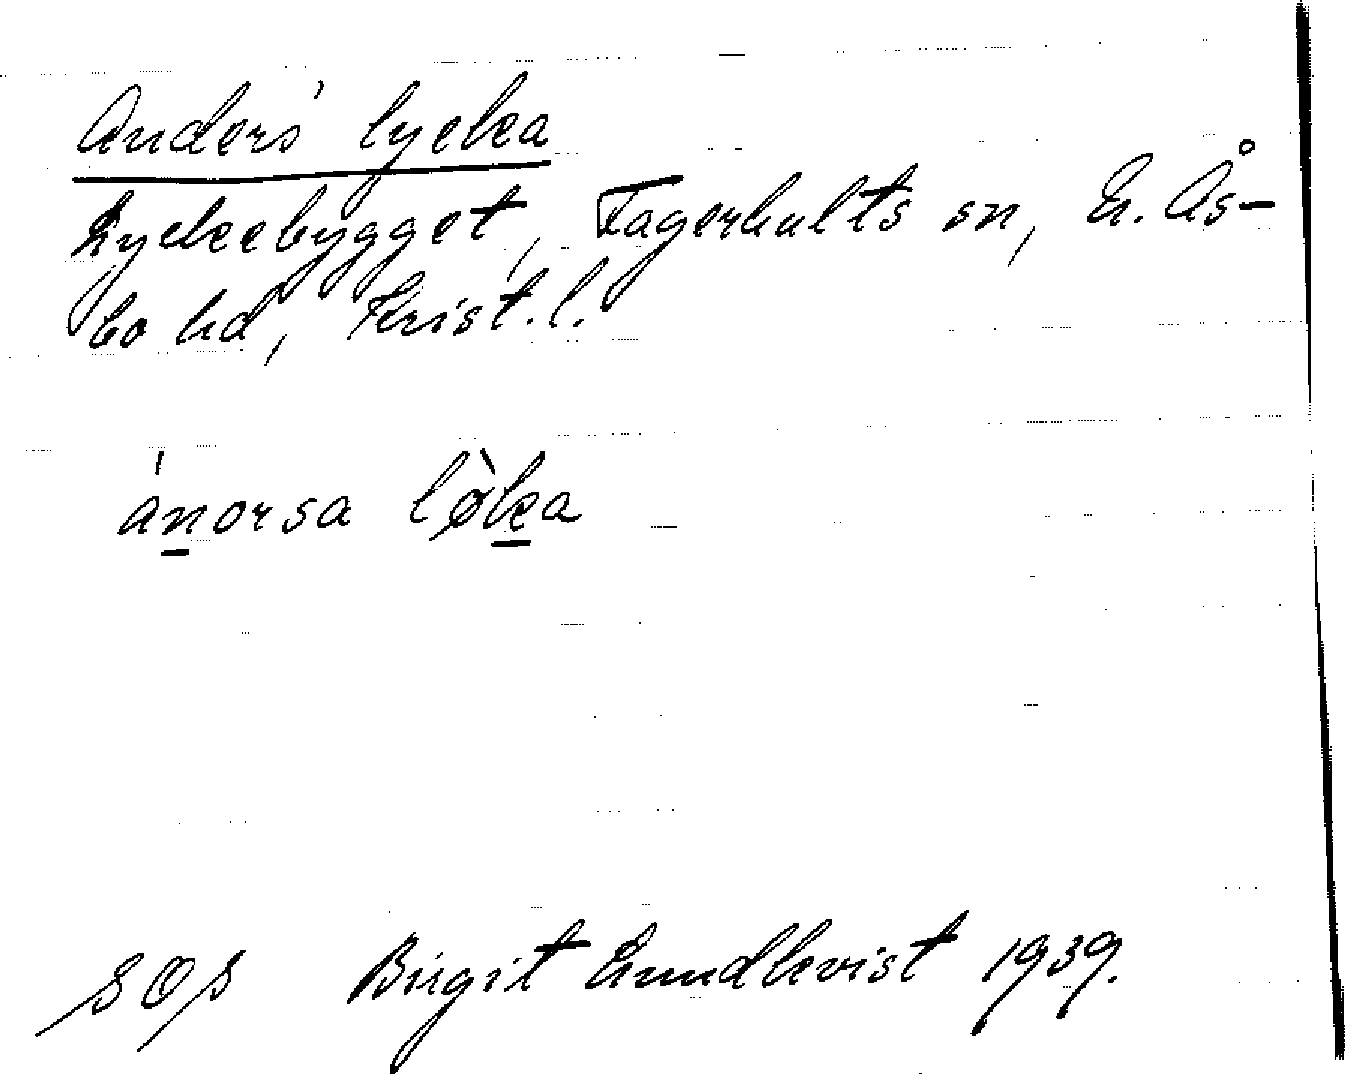 Anders' lycka
Lyckebygget, Fagerhults sn, N. Ås-
bo hd, Krist. l.
án̲orsa lø̀k̲a
SOS Birgit Lundkvist 1939.